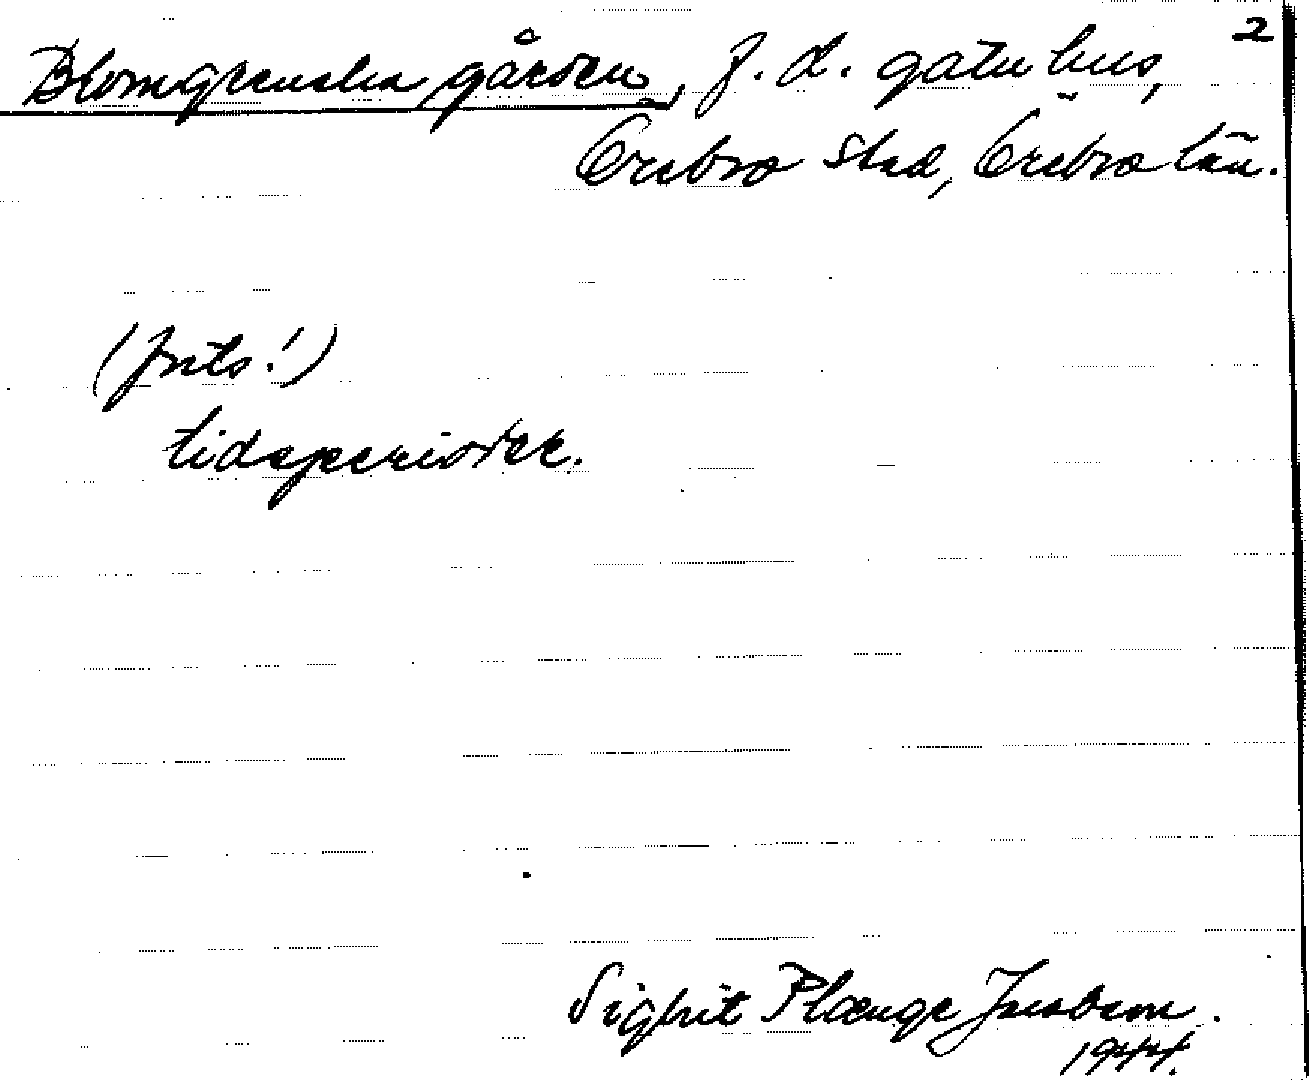 2
Blomgrenska gården, f. d. gatuhus,
Örebro stad, Örebro län.
(forts.!)
tidsperioder.
Sigbrit Plænge Jacobson.
1944.